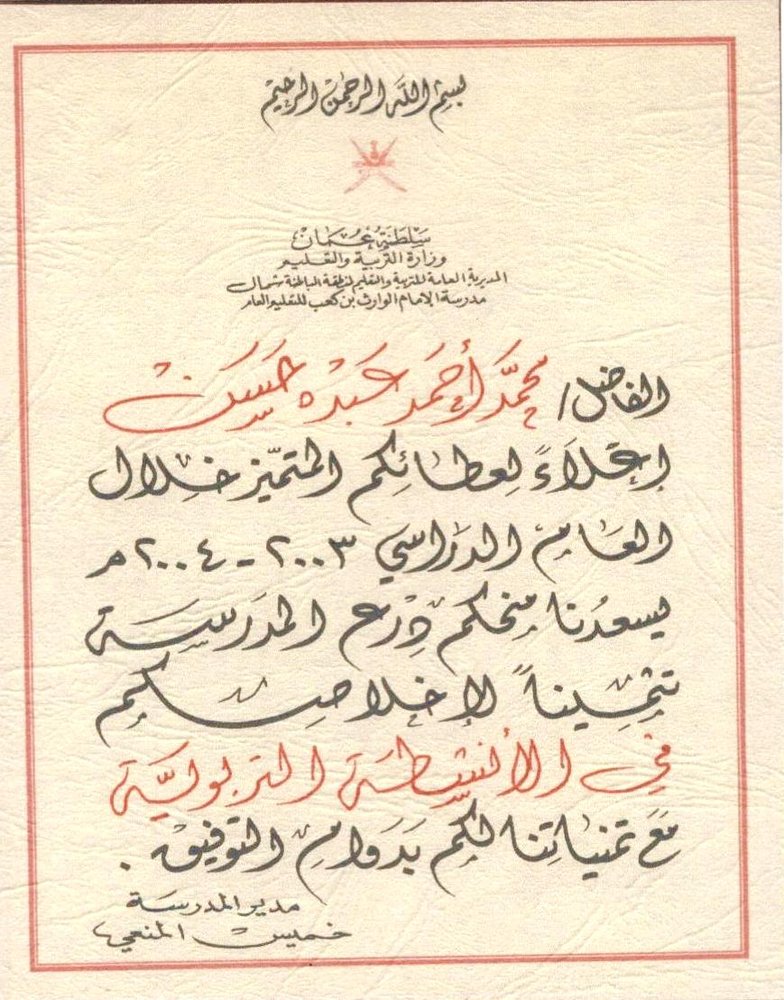 بسم الله الرحمن الرحيم
سلطنة عمان
وزارة التربية والتعليم
المديرية العامة للتربية والتعليم لمنطقة الباطنة شمال
مدرسة الإمام الوارث بن كعب للتعليم العام
الفاضل / محمّد أحمد عبده حسين
إعلاءً لعطائكم المتميّز خلال
العام الدراسي ٢٠٠٣ - ٢٠٠٤ م
يسعدنا منحكم درع المدرسة
تثميناً لإخلاصكم
في الأنشطة التربوية
مع تمنياتنا لكم بدوام التوفيق .
مدير المدرسة
خميس المنعي